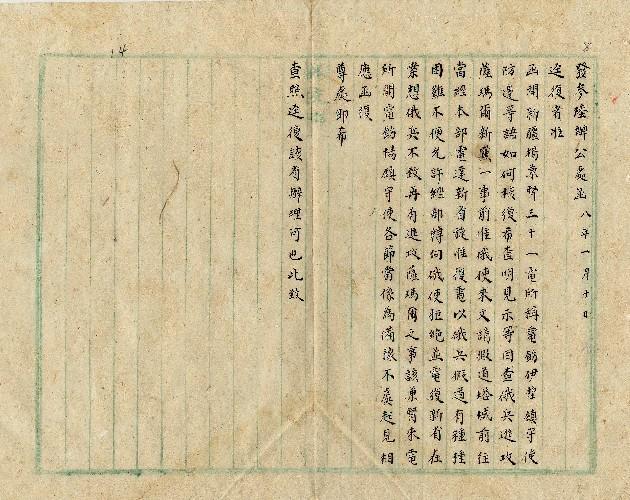 發參陸辦公處函 八年一月十日
逕復者准
函開新疆楊鼎臣三十一電所稱電飭伊犁鎮守使
防邊等語如何核復希查明見示等因查俄兵進攻
薩瑪爾新黨一事前准俄使來文請假道塔城前往
當經本部電達新省旋准復電以俄兵假道有種種
困難不便允許經部轉向俄使拒絕並電復新省在
案想俄兵不致再有進攻薩瑪爾之事該兼督來電
所開電飭楊鎮守使各節當係為防範不虞起見相
應函復
尊處即希
查照逕復該省辦理可也此致
8
14